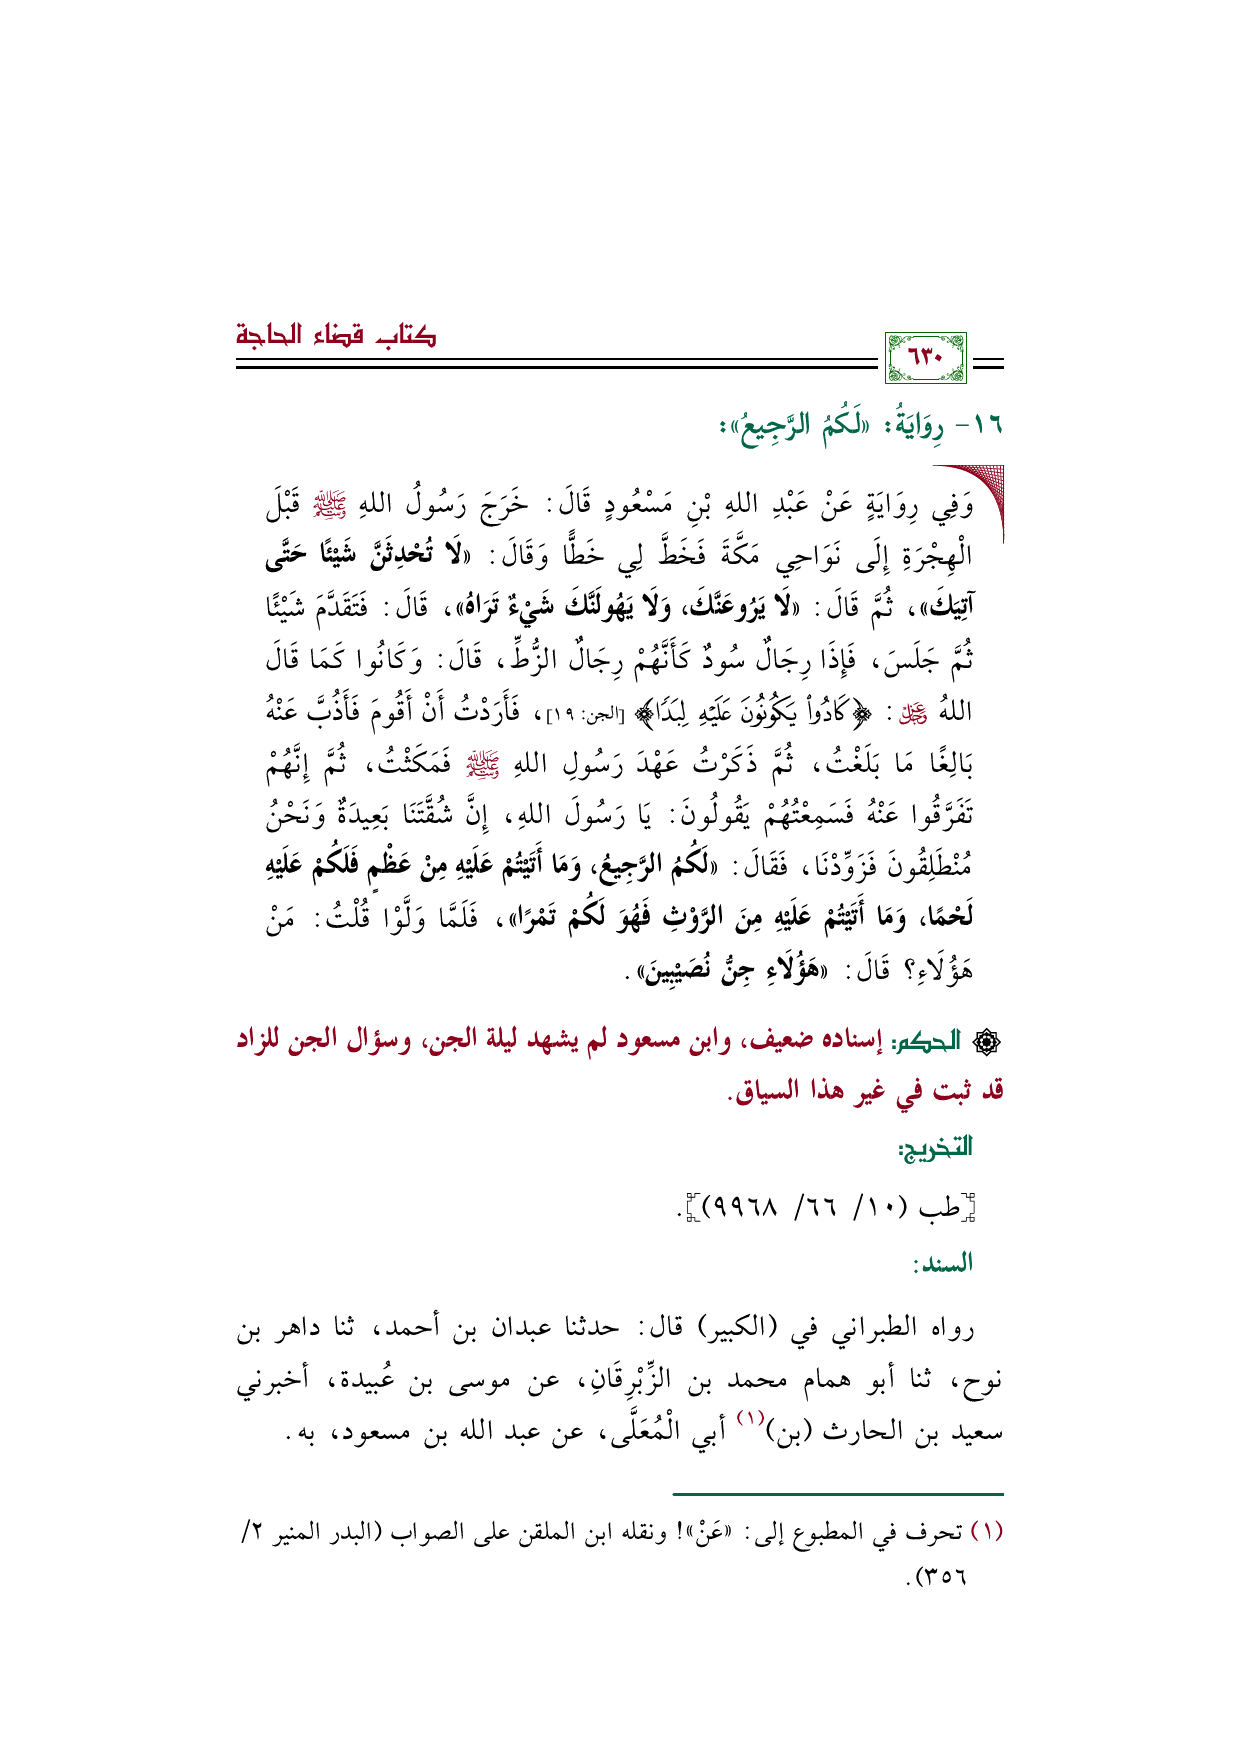 كتاب قضاء الحاجة
٦٣٠
١٦- رِوَايَةُ: «لَكُمُ الرَّجِيعُ»:
وَفِي رِوَايَةٍ عَنْ عَبْدِ اللهِ بْنِ مَسْعُودٍ قَالَ: خَرَجَ رَسُولُ اللهِ ﷺ قَبْلَ
الْهِجْرَةِ إِلَى نَوَاحِي مَكَّةَ فَخَطَّ لِي خَطًّا وَقَالَ: «لَا تُحْدِثَنَّ شَيْئًا حَتَّى
آتِيَكَ»، ثُمَّ قَالَ: «لَا يَرُوعَنَّكَ، وَلَا يَهُولَنَّكَ شَيْءٌ تَرَاهُ»، قَالَ: فَتَقَدَّمَ شَيْئًا
ثُمَّ جَلَسَ، فَإِذَا رِجَالٌ سُودٌ كَأَنَّهُمْ رِجَالٌ الزُّطِّ، قَالَ: وَكَانُوا كَمَا قَالَ
اللهُ عَزَّ وَجَلَّ: ﴿كَادُواْ يَكُونُونَ عَلَيْهِ لِبَدٗا﴾ [الجن: ١٩]، فَأَرَدْتُ أَنْ أَقُومَ فَأَذُبَّ عَنْهُ
بَالِغًا مَا بَلَغْتُ، ثُمَّ ذَكَرْتُ عَهْدَ رَسُولِ اللهِ ﷺ فَمَكَثْتُ، ثُمَّ إِنَّهُمْ
تَفَرَّقُوا عَنْهُ فَسَمِعْتُهُمْ يَقُولُونَ: يَا رَسُولَ اللهِ، إِنَّ شُقَّتَنَا بَعِيدَةٌ وَنَحْنُ
مُنْطَلِقُونَ فَزَوِّدْنَا، فَقَالَ: «لَكُمُ الرَّجِيعُ، وَمَا أَتَيْتُمْ عَلَيْهِ مِنْ عَظْمٍ فَلَكُمْ عَلَيْهِ
لَحْمًا، وَمَا أَتَيْتُمْ عَلَيْهِ مِنَ الرَّوْثِ فَهُوَ لَكُمْ تَمْرًا»، فَلَمَّا وَلَّوْا قُلْتُ: مَنْ
هَؤُلَاءِ؟ قَالَ: «هَؤُلَاءِ جِنُّ نُصَيْبِينَ».
الحكم: إسناده ضعيف، وابن مسعود لم يشهد ليلة الجن، وسؤال الجن للزاد
قد ثبت في غير هذا السياق.
التخريج:
[طب (١٠/ ٦٦/ ٩٩٦٨)].
السند:
رواه الطبراني في (الكبير) قال: حدثنا عبدان بن أحمد، ثنا داهر بن
نوح، ثنا أبو همام محمد بن الزِّبْرِقَانِ، عن موسى بن عُبيدة، أخبرني
سعيد بن الحارث (بن)(١) أبي الْمُعَلَّى، عن عبد الله بن مسعود، به.
(١) تحرف في المطبوع إلى: «عَنْ»! ونقله ابن الملقن على الصواب (البدر المنير ٢/
٣٥٦).